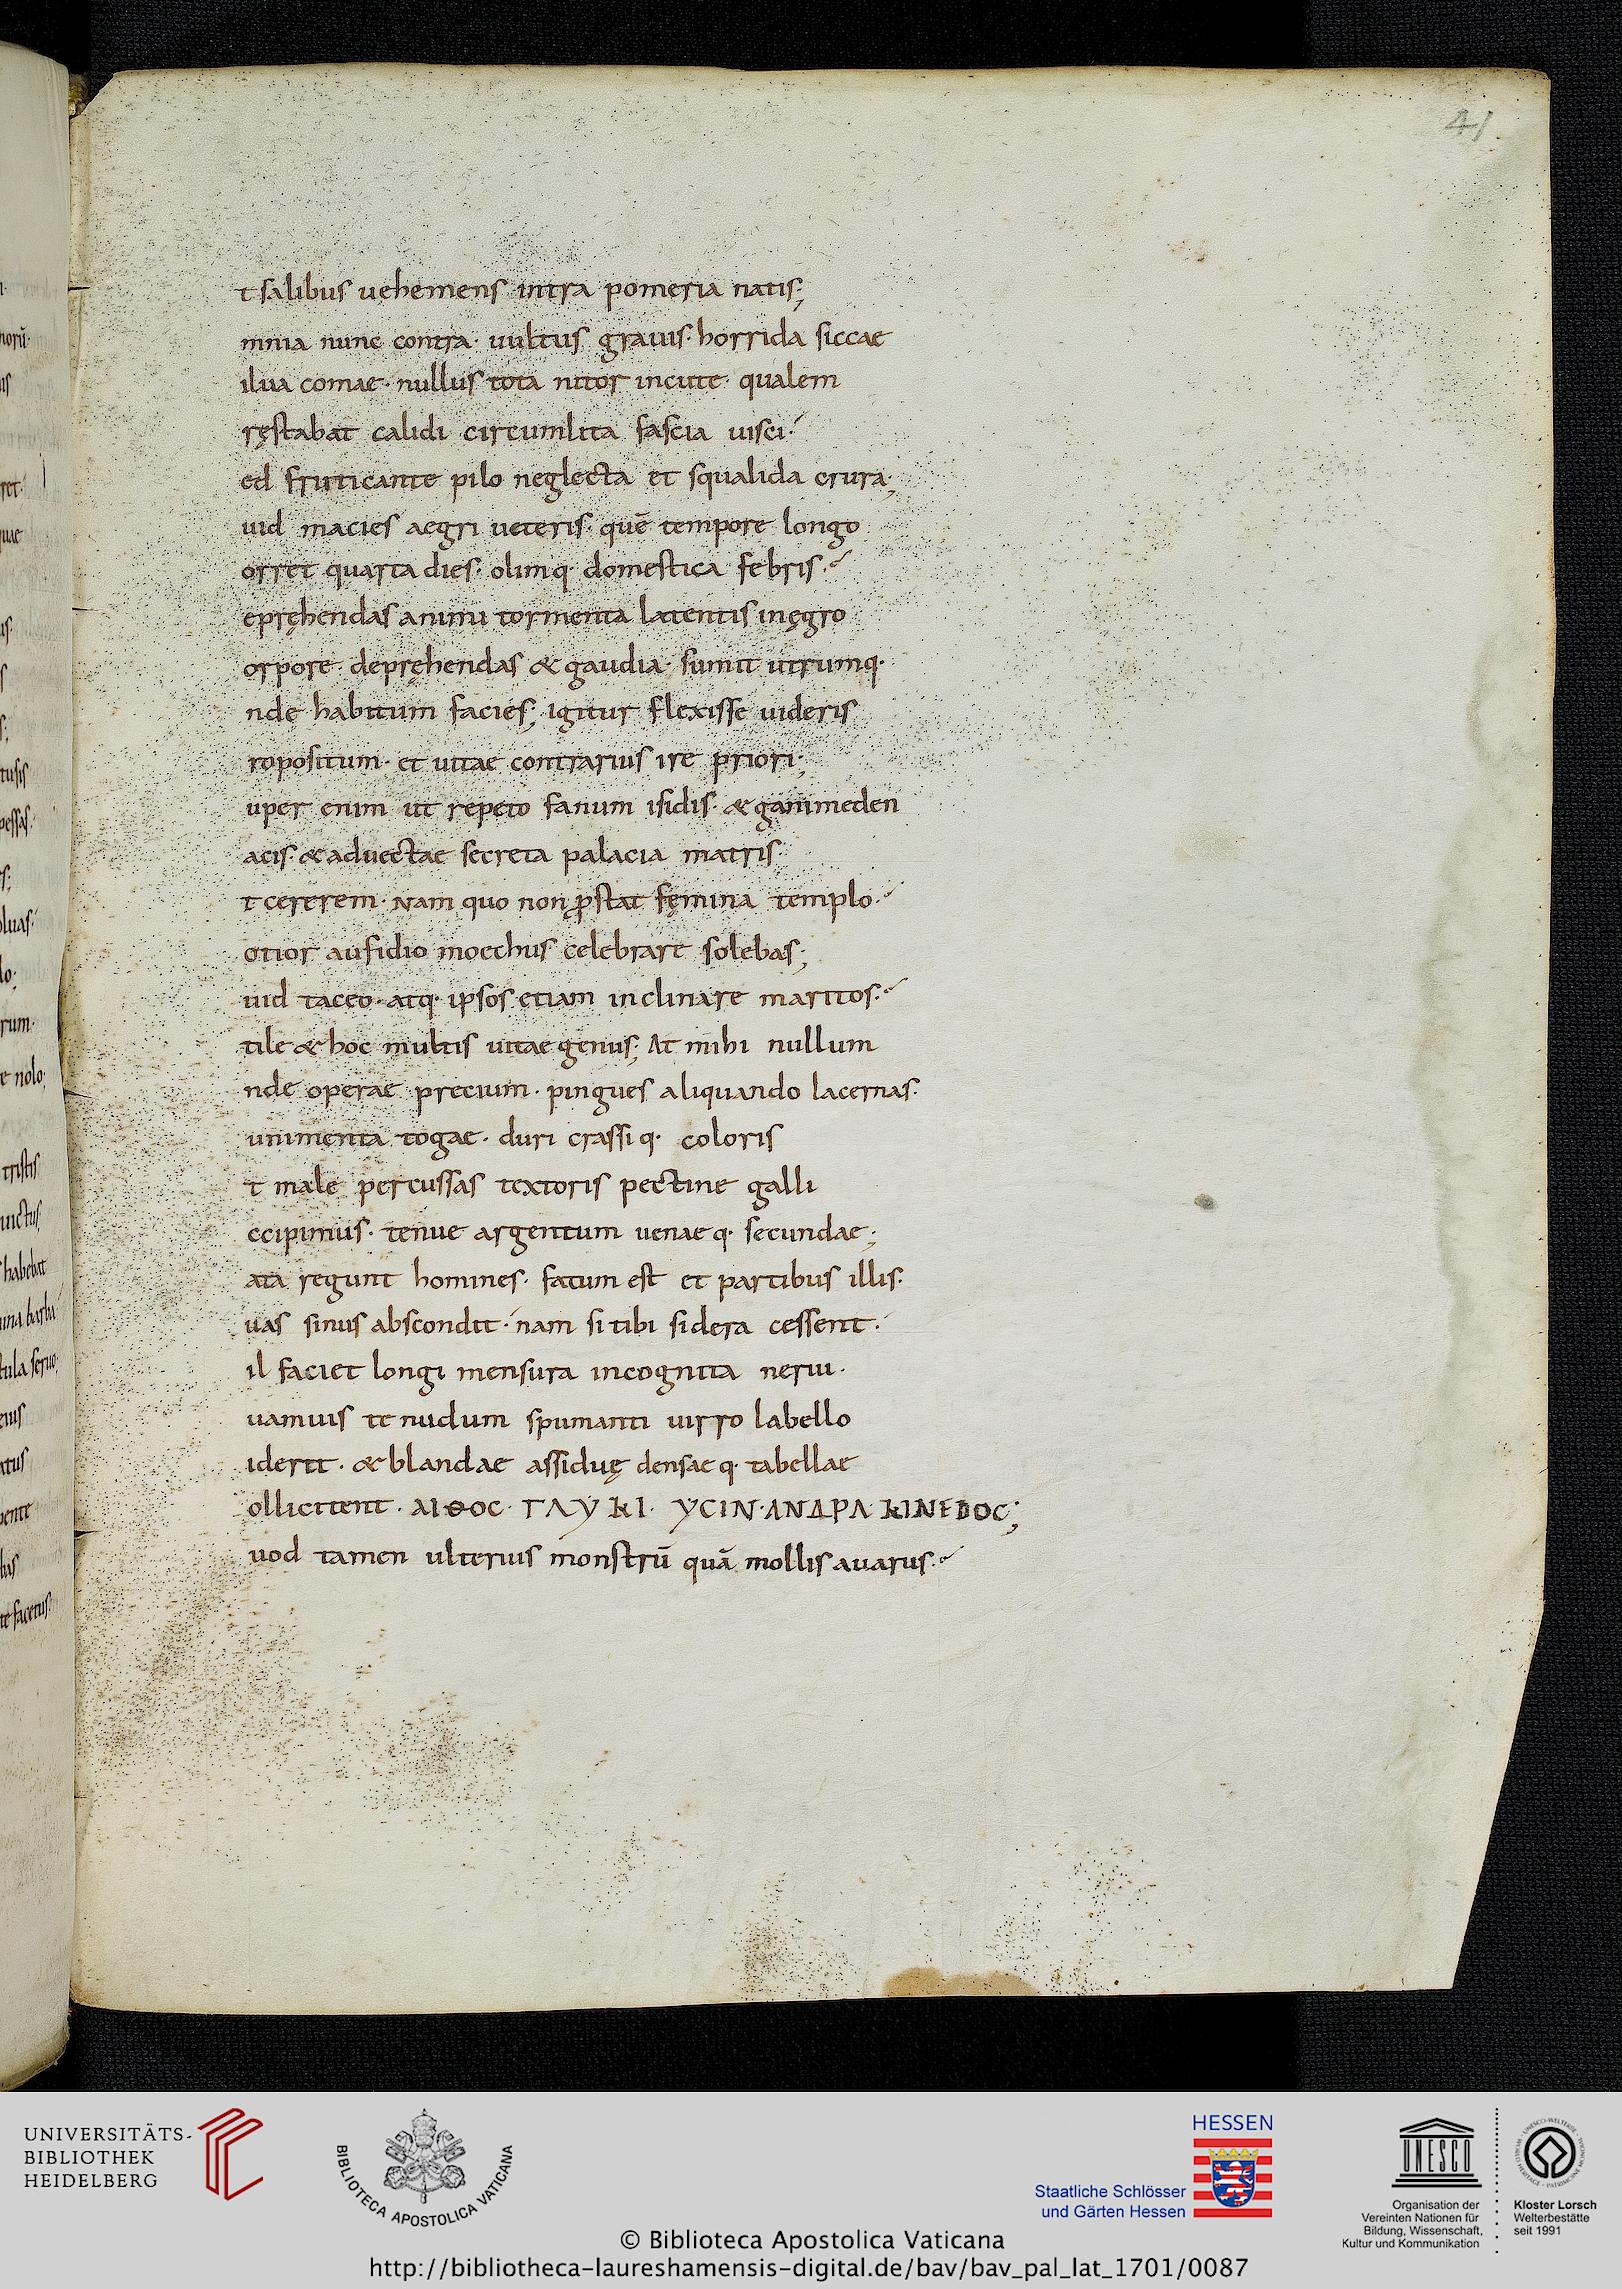 41
t salibus uehemens intra pomeria natis;
mnia nunc contra· uultus grauis· horrida siccae
ilua comae· nullus tota nitor incute· qualem
ręstabat calidi circumlita fascia uisci·
ed fruticante pilo neglecta et squalida crura;
uid macies aegri ueteris· quē tempore longo
orret quarta dies· olimq· domestica febris·
epręhendas animi tormenta latentis inęgro
orpore· depręhendas & gaudia· sumit utrumq·
nde habitum facies; igitur flexisse uideris
ropositum· et uitae contrarius ire priori;
uper enim ut repeto fanum isidis· & ganimeden
acis· & aduectae secreta palacia matris·
t cererem· Nam quo non ꝓstat fęmina templo·
otior aufidio moechus celebrare solebas;
uid taceo· atq· ipsos etiam inclinare maritos·
tile & hoc multis uitae genus; At mihi nullum
nde operae precium· pingues aliquando lacernas·
unimenta togae· duri crassi q· coloris
t male percussas textoris pectine galli
ccipimus· tenue argentum uenae q· secundae;
ata regunt homines· fatum est et partibus illis·
uas sinus abscondit· nam si tibi sidera cessent·
il faciet longi mensura incognita nerui·
uamuis te nudum spumanti uirro labello
iderit· & blandae assiduę densae q· tabellae
ollicitent· ΑΙΘΟC· ΓΛΥΚΙ· ΥCΙΝ· ΑΝΔΡΑ ΚΙΝΕDΟC;
uod tamen ulterius monstrū quā mollis auarus·
UNIVERSITÄTS-
BIBLIOTHEK
HEIDELBERG
BIBLIOTECA APOSTOLICA VATICANA
HESSEN
Staatliche Schlösser
und Gärten Hessen
UNESCO
Organisation der
Vereinten Nationen für
Bildung, Wissenschaft,
Kultur und Kommunikation
Kloster Lorsch
Welterbestätte
seit 1991
© Biblioteca Apostolica Vaticana
http://bibliotheca-laureshamensis-digital.de/bav/bav_pal_lat_1701/0087